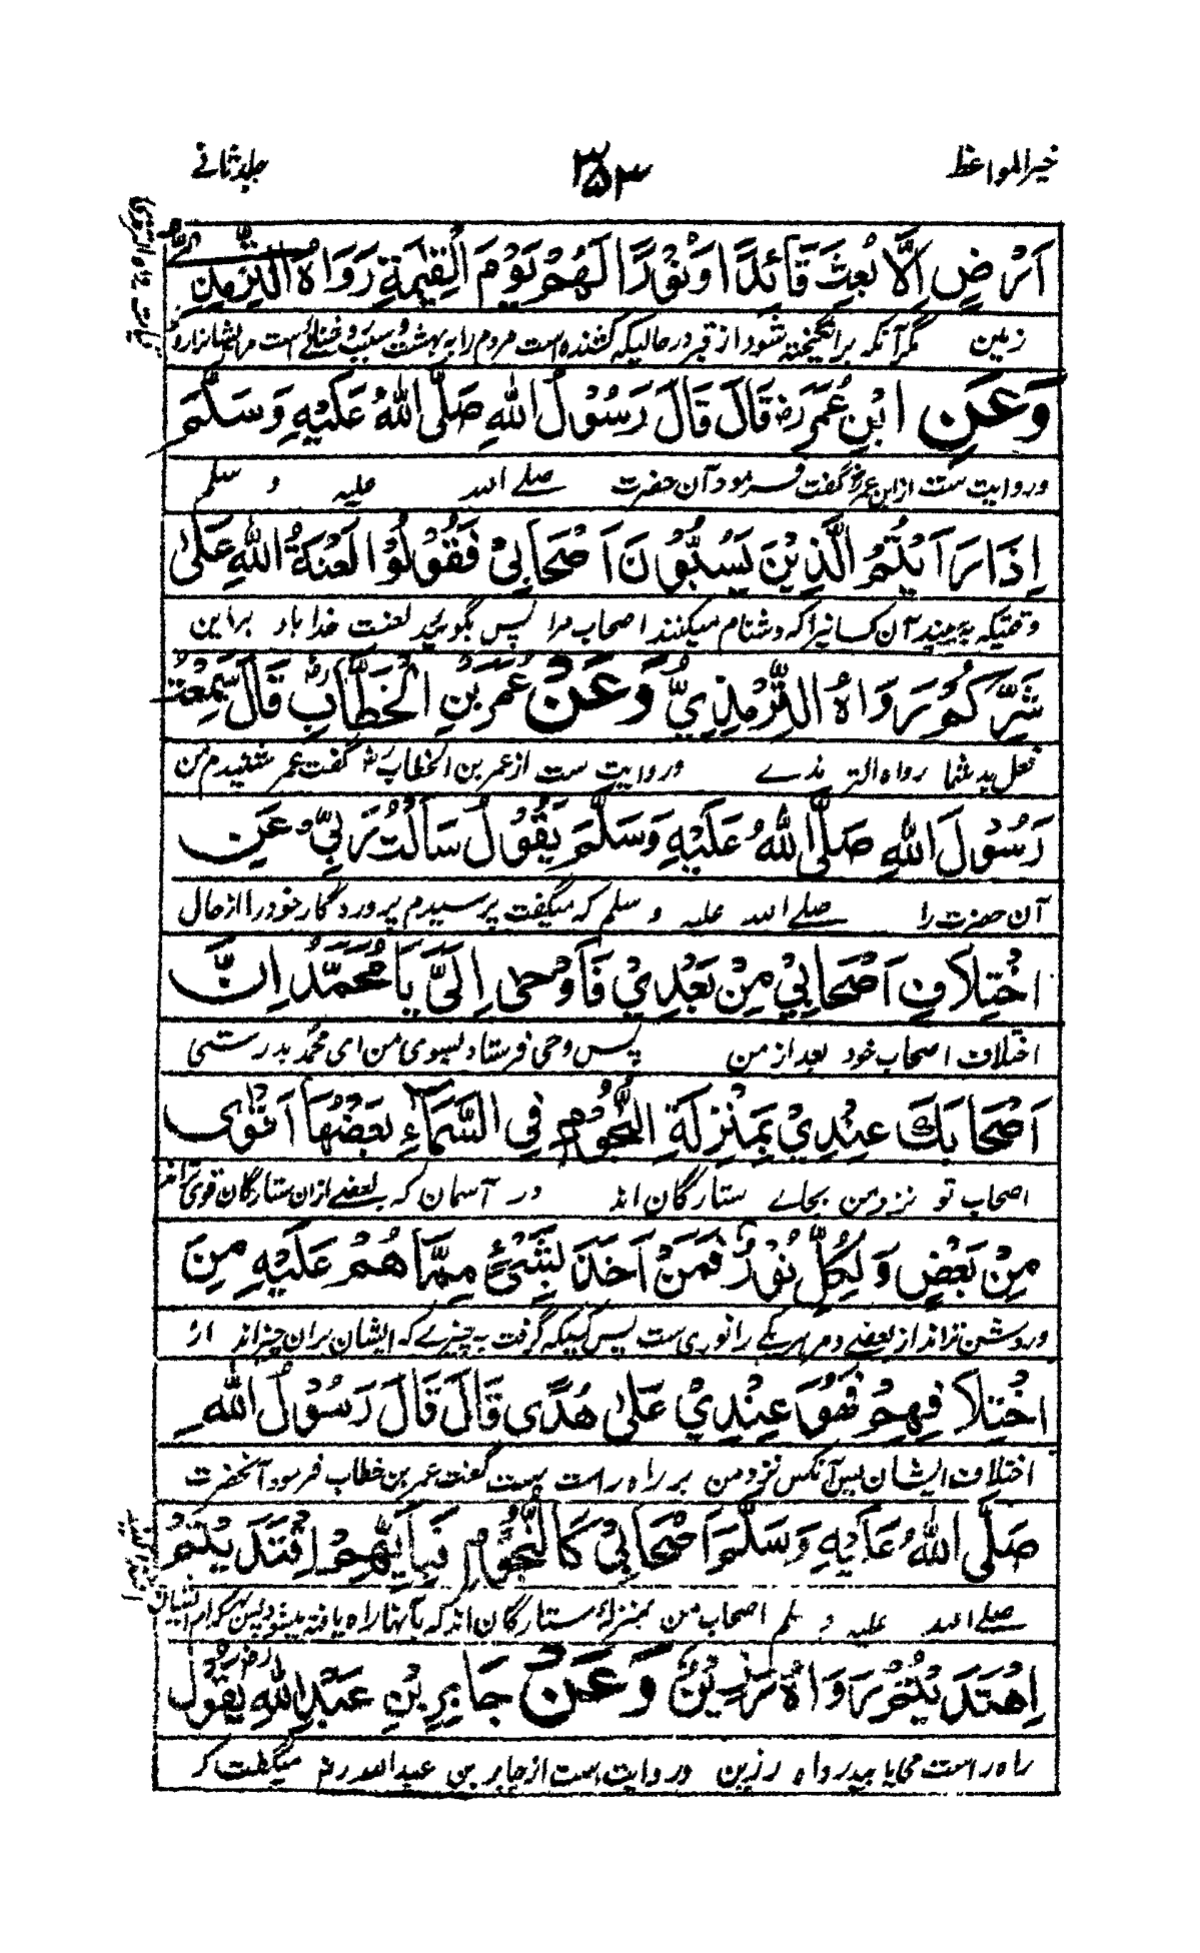 خیرالمواعظ ۳۵۳ جلد ثانے
اَرْضٍ اِلَّا بُعِثَ قَائِدًا وَنُوْرًا لَهُمْ يَوْمَ الْقِيٰمَةِ رَوَاهُ التِّرْمِذِيُّ
زمین مگر آنکہ برانگیختہ شود از قبر در حالیکہ کشنده است مردم را بہ بہشت و سبب روشنائے است مر ایشانرا
وَعَنِ ابْنِ عُمَرَ رض قَالَ قَالَ رَسُوْلُ اللّٰهِ صَلَّى اللّٰهُ عَلَيْهِ وَسَلَّمَ
و روایت ست از ابن عمر رض گفت فرمود آن حضرت صلے اللہ علیہ و سلم
اِذَا رَاَيْتُمُ الَّذِيْنَ يَسُبُّوْنَ اَصْحَابِيْ فَقُوْلُوْا لَعْنَةُ اللّٰهِ عَلٰى
وقتیکہ بہ بینید آن کسانیرا کہ دشنام میکنند اصحاب مرا پس بگوئید لعنت خدا باد براین
شَرِّكُمْ رَوَاهُ التِّرْمِذِيُّ وَعَنْ عُمَرَ بْنِ الْخَطَّابِ رض قَالَ سَمِعْتُ
فعل بد شما رواہ الترمذے و روایت ست از عمر بن الخطاب رض گفت عمر شنیدم من
رَسُوْلَ اللّٰهِ صَلَّى اللّٰهُ عَلَيْهِ وَسَلَّمَ يَقُوْلُ سَاَلْتُ رَبِّيْ عَنِ
آن حضرت را صلے اللہ علیہ و سلم کہ میگفت پرسیدم پروردگار خود را از حال
اخْتِلَافِ اَصْحَابِيْ مِنْ بَعْدِيْ فَاَوْحٰى اِلَيَّ يَا مُحَمَّدُ اِنَّ
اختلاف اصحاب خود بعد از من پس وحی فرستاد بسوی من ای محمد بدرستی
اَصْحَابَكَ عِنْدِيْ بِمَنْزِلَةِ النُّجُوْمِ فِي السَّمَاءِ بَعْضُهَا اَقْوٰى
اصحاب تو نزد من بجاے ستارگان اند در آسمان کہ بعضے ازان ستارگان قوی تراند
مِنْ بَعْضٍ وَلِكُلٍّ نُوْرٌ فَمَنْ اَخَذَ بِشَيْءٍ مِمَّا هُمْ عَلَيْهِ مِنَ
و روشن تراند از بعضے و مر ہر یکے را نوری ست پس کسیکہ گرفت بہ چیزے کہ ایشان بران چیزاند از
اخْتِلَافِهِمْ فَهُوَ عِنْدِيْ عَلٰى هُدًى قَالَ قَالَ رَسُوْلُ اللّٰهِ
اختلاف ایشان پس آنکس نزد من بر راہ راست ست گفت عمر بن خطاب فرمود آنحضرت
صَلَّى اللّٰهُ عَلَيْهِ وَسَلَّمَ اَصْحَابِيْ كَالنُّجُوْمِ فَبِاَيِّهِمُ اقْتَدَيْتُمُ
صلے اللہ علیہ و سلم اصحاب من بمنزلۂ ستارگان اند کہ بآنہا راہ یافتہ میشود پس بہر کدام ایشان
اهْتَدَيْتُمْ رَوَاهُ رَزِيْنٌ وَعَنْ جَابِرِ بْنِ عَبْدِ اللّٰهِ رض يَقُوْلُ
راہ راست می یابید رواہ رزین و روایت است از جابر بن عبداللہ رض میگفت کہ